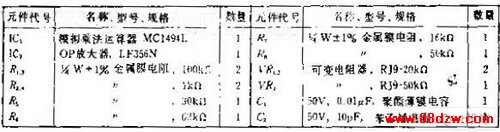 元件代号 名称、型号、规格 数量 元件代号 名称、型号、规格 数量
IC₁ 模拟乘法运算器 MC1494L 1
IC₂ OP放大器，LF356N 1
R₁,₂ ¼W±1%金属膜电阻，100kΩ 2
R₃,₄ 〃 1kΩ 2
R₅ 〃 30kΩ 1
R₆ 〃 62kΩ 1
¼W±1%金属膜电阻，16kΩ 1
〃 1
VR₁,₂ 可变电阻器，RJ9-20kΩ 2
VR₃ 〃 RJ9-50kΩ 1
C₁ 50V，0.01μF，聚酯薄膜电容 1
C₂ 50V，10pF，
www.88dzw.com